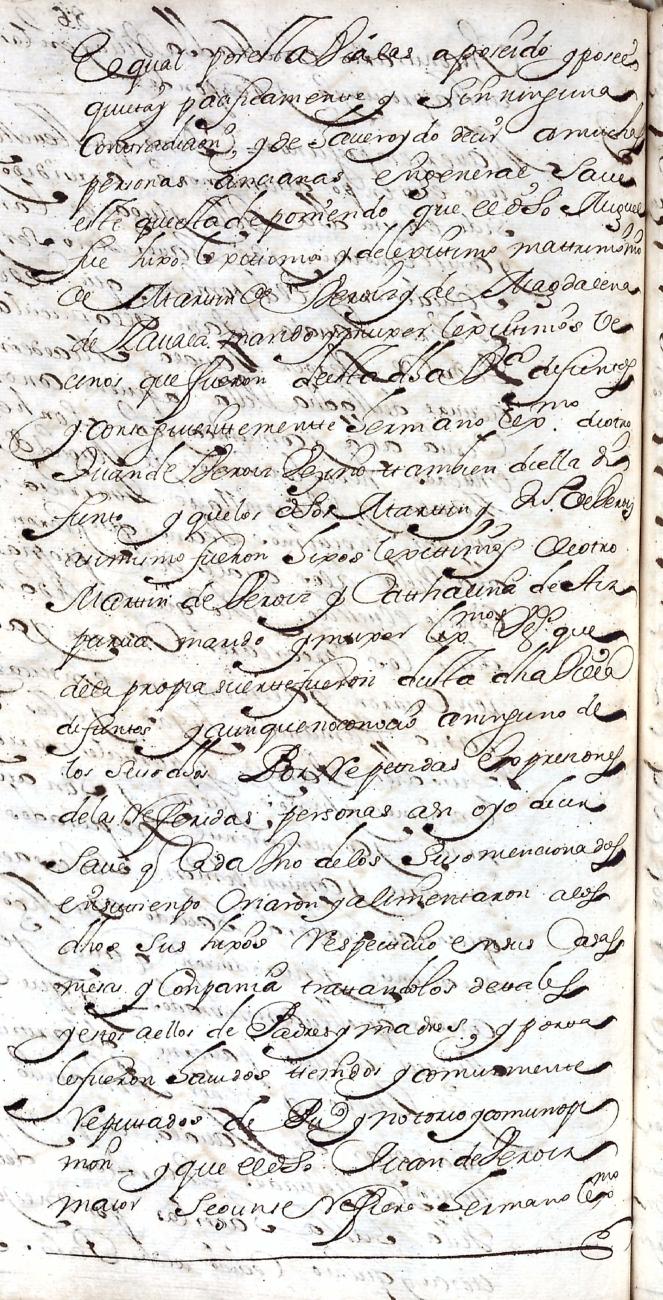 El qual por esta Vía las a poseido y posee
quieta y pacificamente y sin ninguna
Contradicion, y de saver oydo decir a muchas
personas ancianas en general save
este que esta deponiendo que el dho Miguel
fue hixo lexitimo y de lexitimo mattrimonio
de Martin de Beroiz y de Magdalena
de marido y muxer lexitimos Ve
cinos que fueron de esta dha difuntos
y consiguientemente hermano lexmo de otro
Juan de Beroiz Vezino tambien de ella di
funto y que los dhos Martin y Jun de Beroiz
asimismo fueron hixos lexitimos de otro
Martin de Beroiz y Catthalina de Aiz
marido y muxer lexmos que
de la propia suerte fueron desta dha
difuntos y aunque no conocio a ninguno de
los suso dhos Por Repetidas Expresiones
de las Refferidas personas a quien oyo decir
save q Cada Uno de los Susomencionados
en su tienpo Criaron y alimentaron a los
dhos sus hixos Respectiuo en sus Casas
mesas y Conpañia trattandolos de tales
y estos a ellos de Padres y madres, y por tales
fueron hauidos tenidos y comunmente
Reputtados de Puco y nottorio y comun opi
nion y que el dho Juan de Beroiz
maior segun se Reffiere hermano lexmo